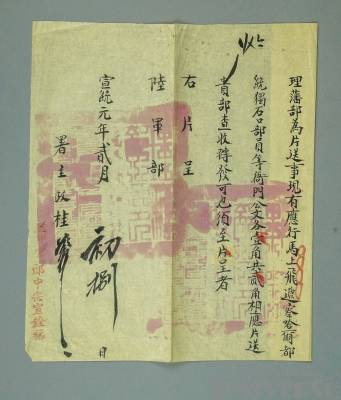 理藩部為片送事現有應行馬上飛遞察哈爾都
統獨石口部員等衙門公文各壹角共貳角相應片送
貴部查收轉發可也須至片呈者
右片呈
陸軍部
宣統元年貳月
初捌
日
署主政桂
郎中